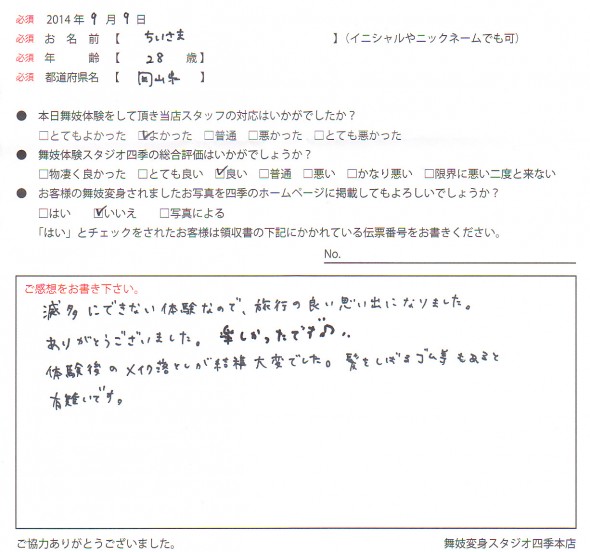 必須 2014 年 9 月 9 日
必須 お 名 前 【 ちいさま 】（イニシャルやニックネームでも可）
必須 年 齢 【 28 歳】
必須 都道府県名 【 岡山県 】
● 本日舞妓体験をして頂き当店スタッフの対応はいかがでしたか？
□とてもよかった ☑よかった □普通 □悪かった □とても悪かった
● 舞妓体験スタジオ四季の総合評価はいかがでしょうか？
□物凄く良かった □とても良い ☑良い □普通 □悪い □かなり悪い □限界に悪い二度と来ない
● お客様の舞妓変身されましたお写真を四季のホームページに掲載してもよろしいでしょうか？
□はい ☑いいえ □写真による
「はい」とチェックをされたお客様は領収書の下記にかかれている伝票番号をお書きください。
No.
ご感想をお書き下さい。
滅多にできない体験なので、旅行の良い思い出になりました。
ありがとうございました。 楽しかったです♪
体験後のメイク落としが結構大変でした。髪をしばるゴム等もあると
有難いです。
ご協力ありがとうございました。 舞妓変身スタジオ四季本店